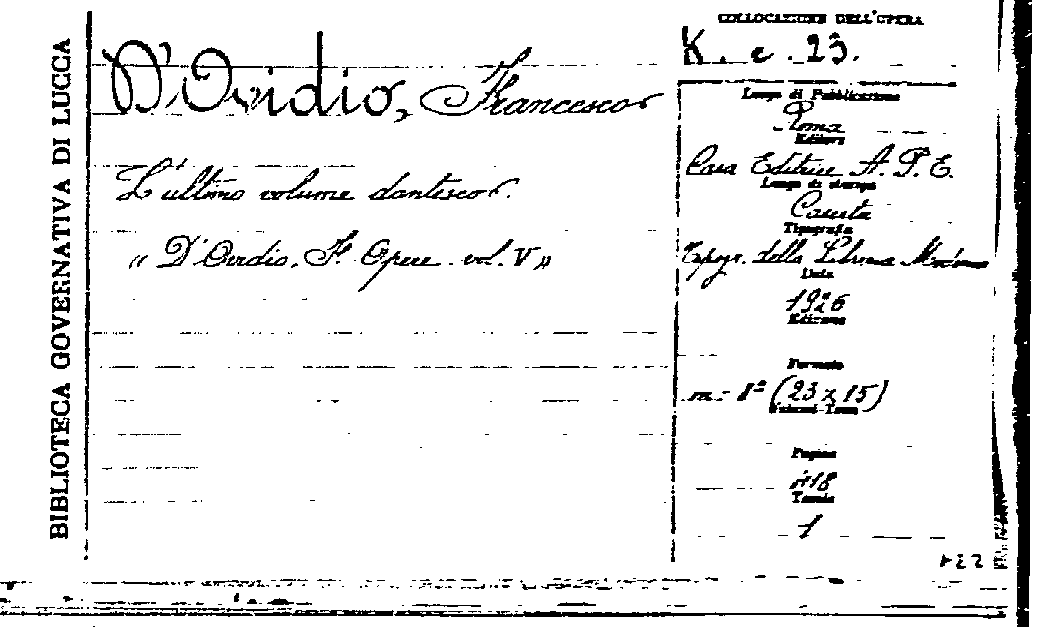 BIBLIOTECA GOVERNATIVA DI LUCCA
D'Ovidio, Francesco
L'ultimo volume dantesco.
"D'Ovidio. F. Opere vol. V"
COLLOCAZIONE DELL'OPERA
K. e. 23.
Luogo di Pubblicazione
Roma
Editore
Casa Editrice A. P. E.
Luogo di stampa
Caserta
Tipografia
Tipogr. della Libreria Moderna
Data
1926
Edizione
Formato
m - 8º (23 x 15)
Volumi-Tomo
Pagine
418
Tavole
1